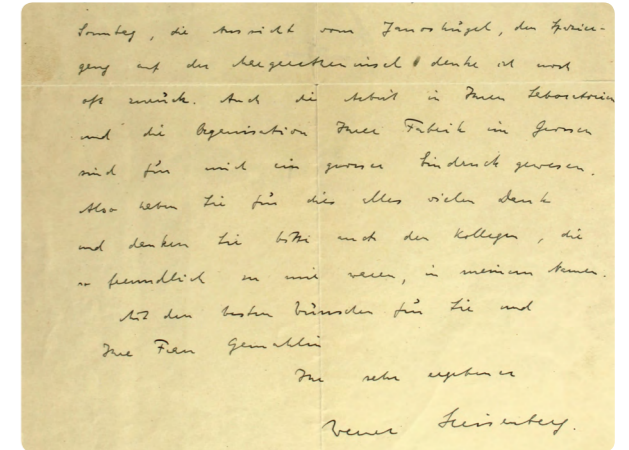 Sonntag, die Aussicht vom Janoshügel, den Spazier-
gang auf der Margareteninsel denke ich noch
oft zurück. Auch die Arbeit in Ihren Laboratorien
und die Organisation Ihrer Fabrik im Grossen
sind für mich ein grosser Eindruck gewesen.
Also haben Sie für dies alles vielen Dank
und danken Sie bitte auch den Kollegen, die
so freundlich zu mir waren, in meinem Namen.
Mit den besten Wünschen für Sie und
Ihre Frau Gemahlin
Ihr sehr ergebener
Werner Heisenberg.